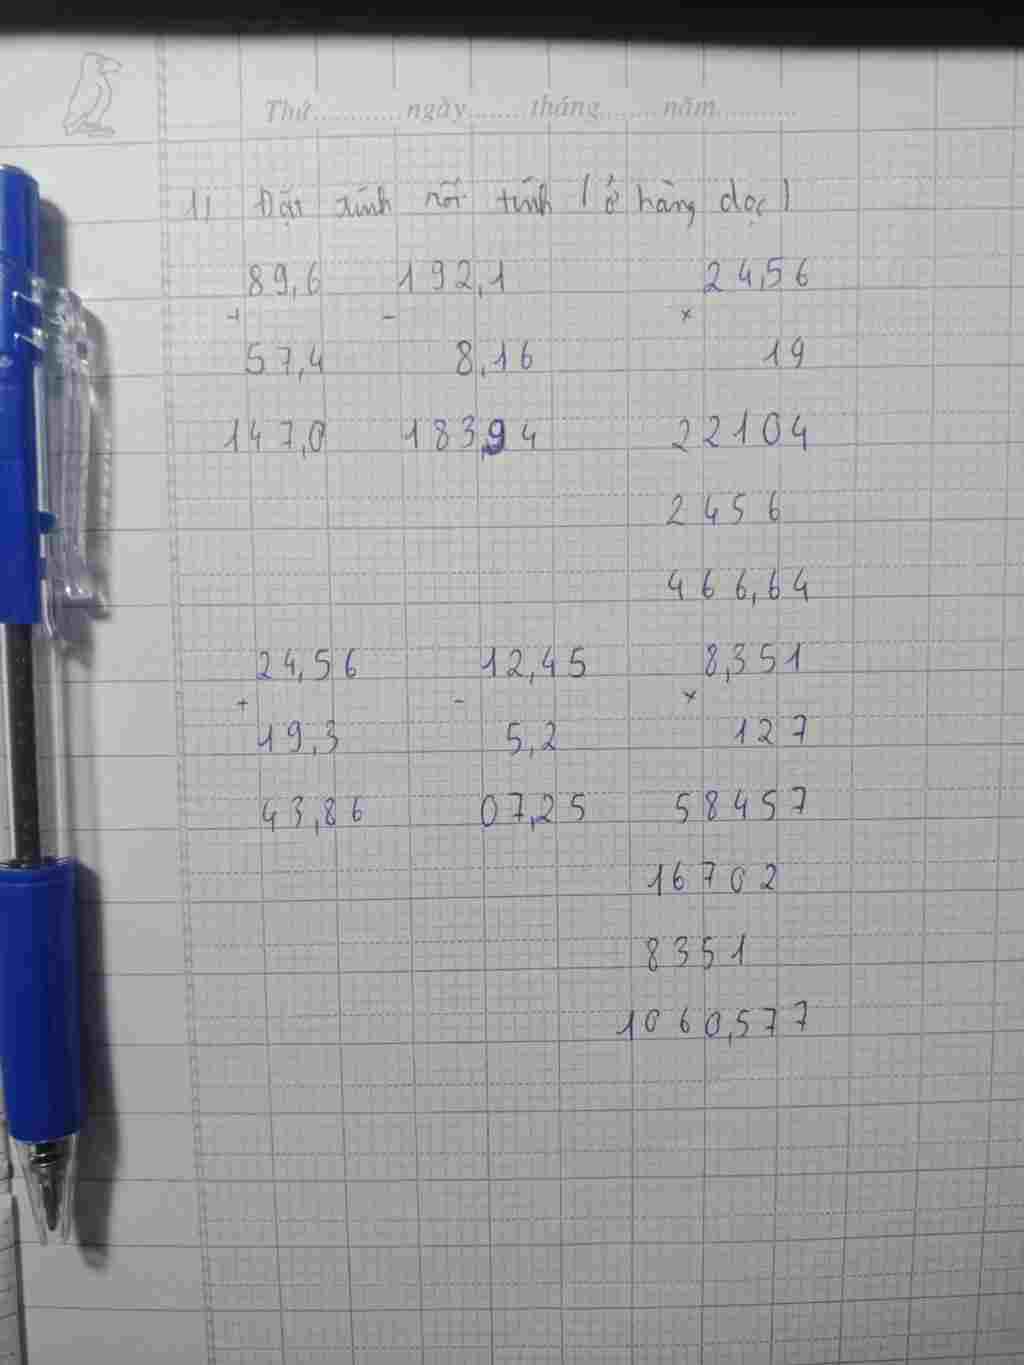 Thứ............ngày.......tháng.......năm..........
1) Đặt tính rồi tính (ở hàng dọc)
89,6 192,1 24,56
+ - x
57,4 8,16 19
147,0 183,94 22104
2456
466,64
24,56 12,45 8,351
+ - x
19,3 5,2 127
43,86 07,25 58457
16702
8351
1060,577